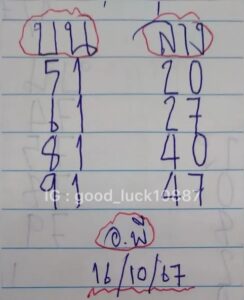 บน ล่าง
51 20
61 27
81 40
91 47
IG : good_luck19887
อ.พี
16/10/67